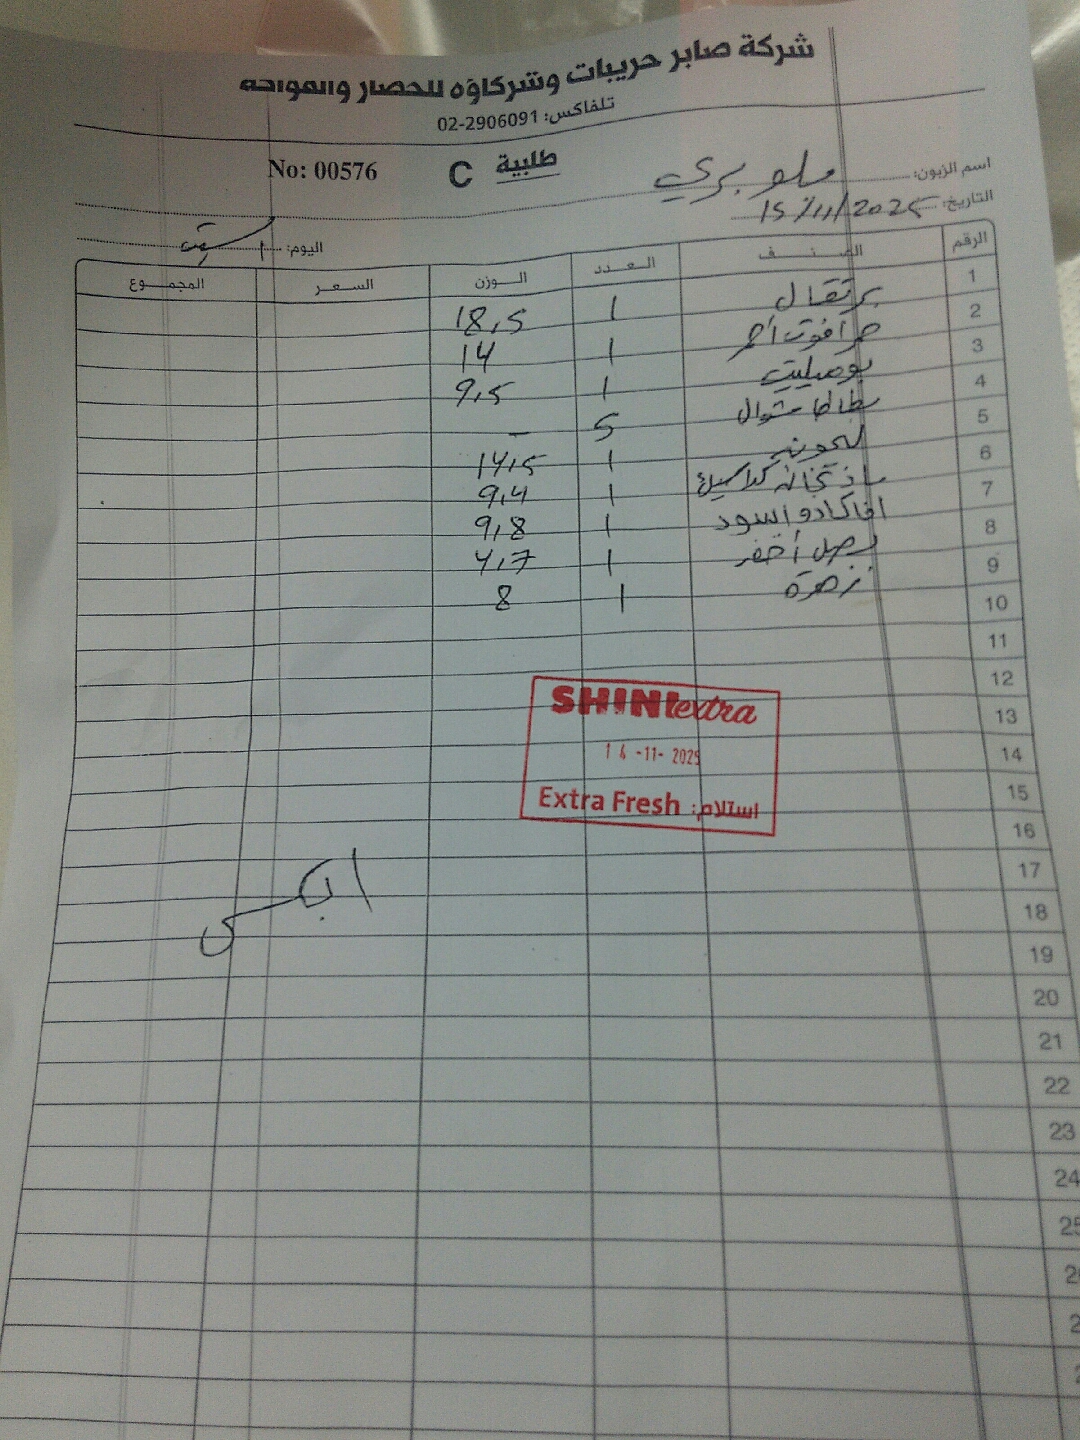 شركة صابر حريبات وشركاؤه للخضار والفواكه
تلفاكس: 02-2906091
No: 00576 C طلبية
اسم الزبون:
التاريخ: 15/11/2025
اليوم: السبت
الرقم الصنف العدد الوزن السعر المجموع
1 برتقال 1 18,5
2 أحمر 1 14
3 بوميليت 1 9,5
4 بطاطا شوال 5 –
5 ليمون 1 14,5
6 باذنجان كلاسيك 1 9,4
7 افاكادو اسود 1 9,8
8 بصل أخضر 1 4,7
9 زهرة 1 8
10
11
12
13
14
15
16
17
18
19
20
21
22
23
24
25
SHINI extra
14-11-2025
Extra Fresh استلام: